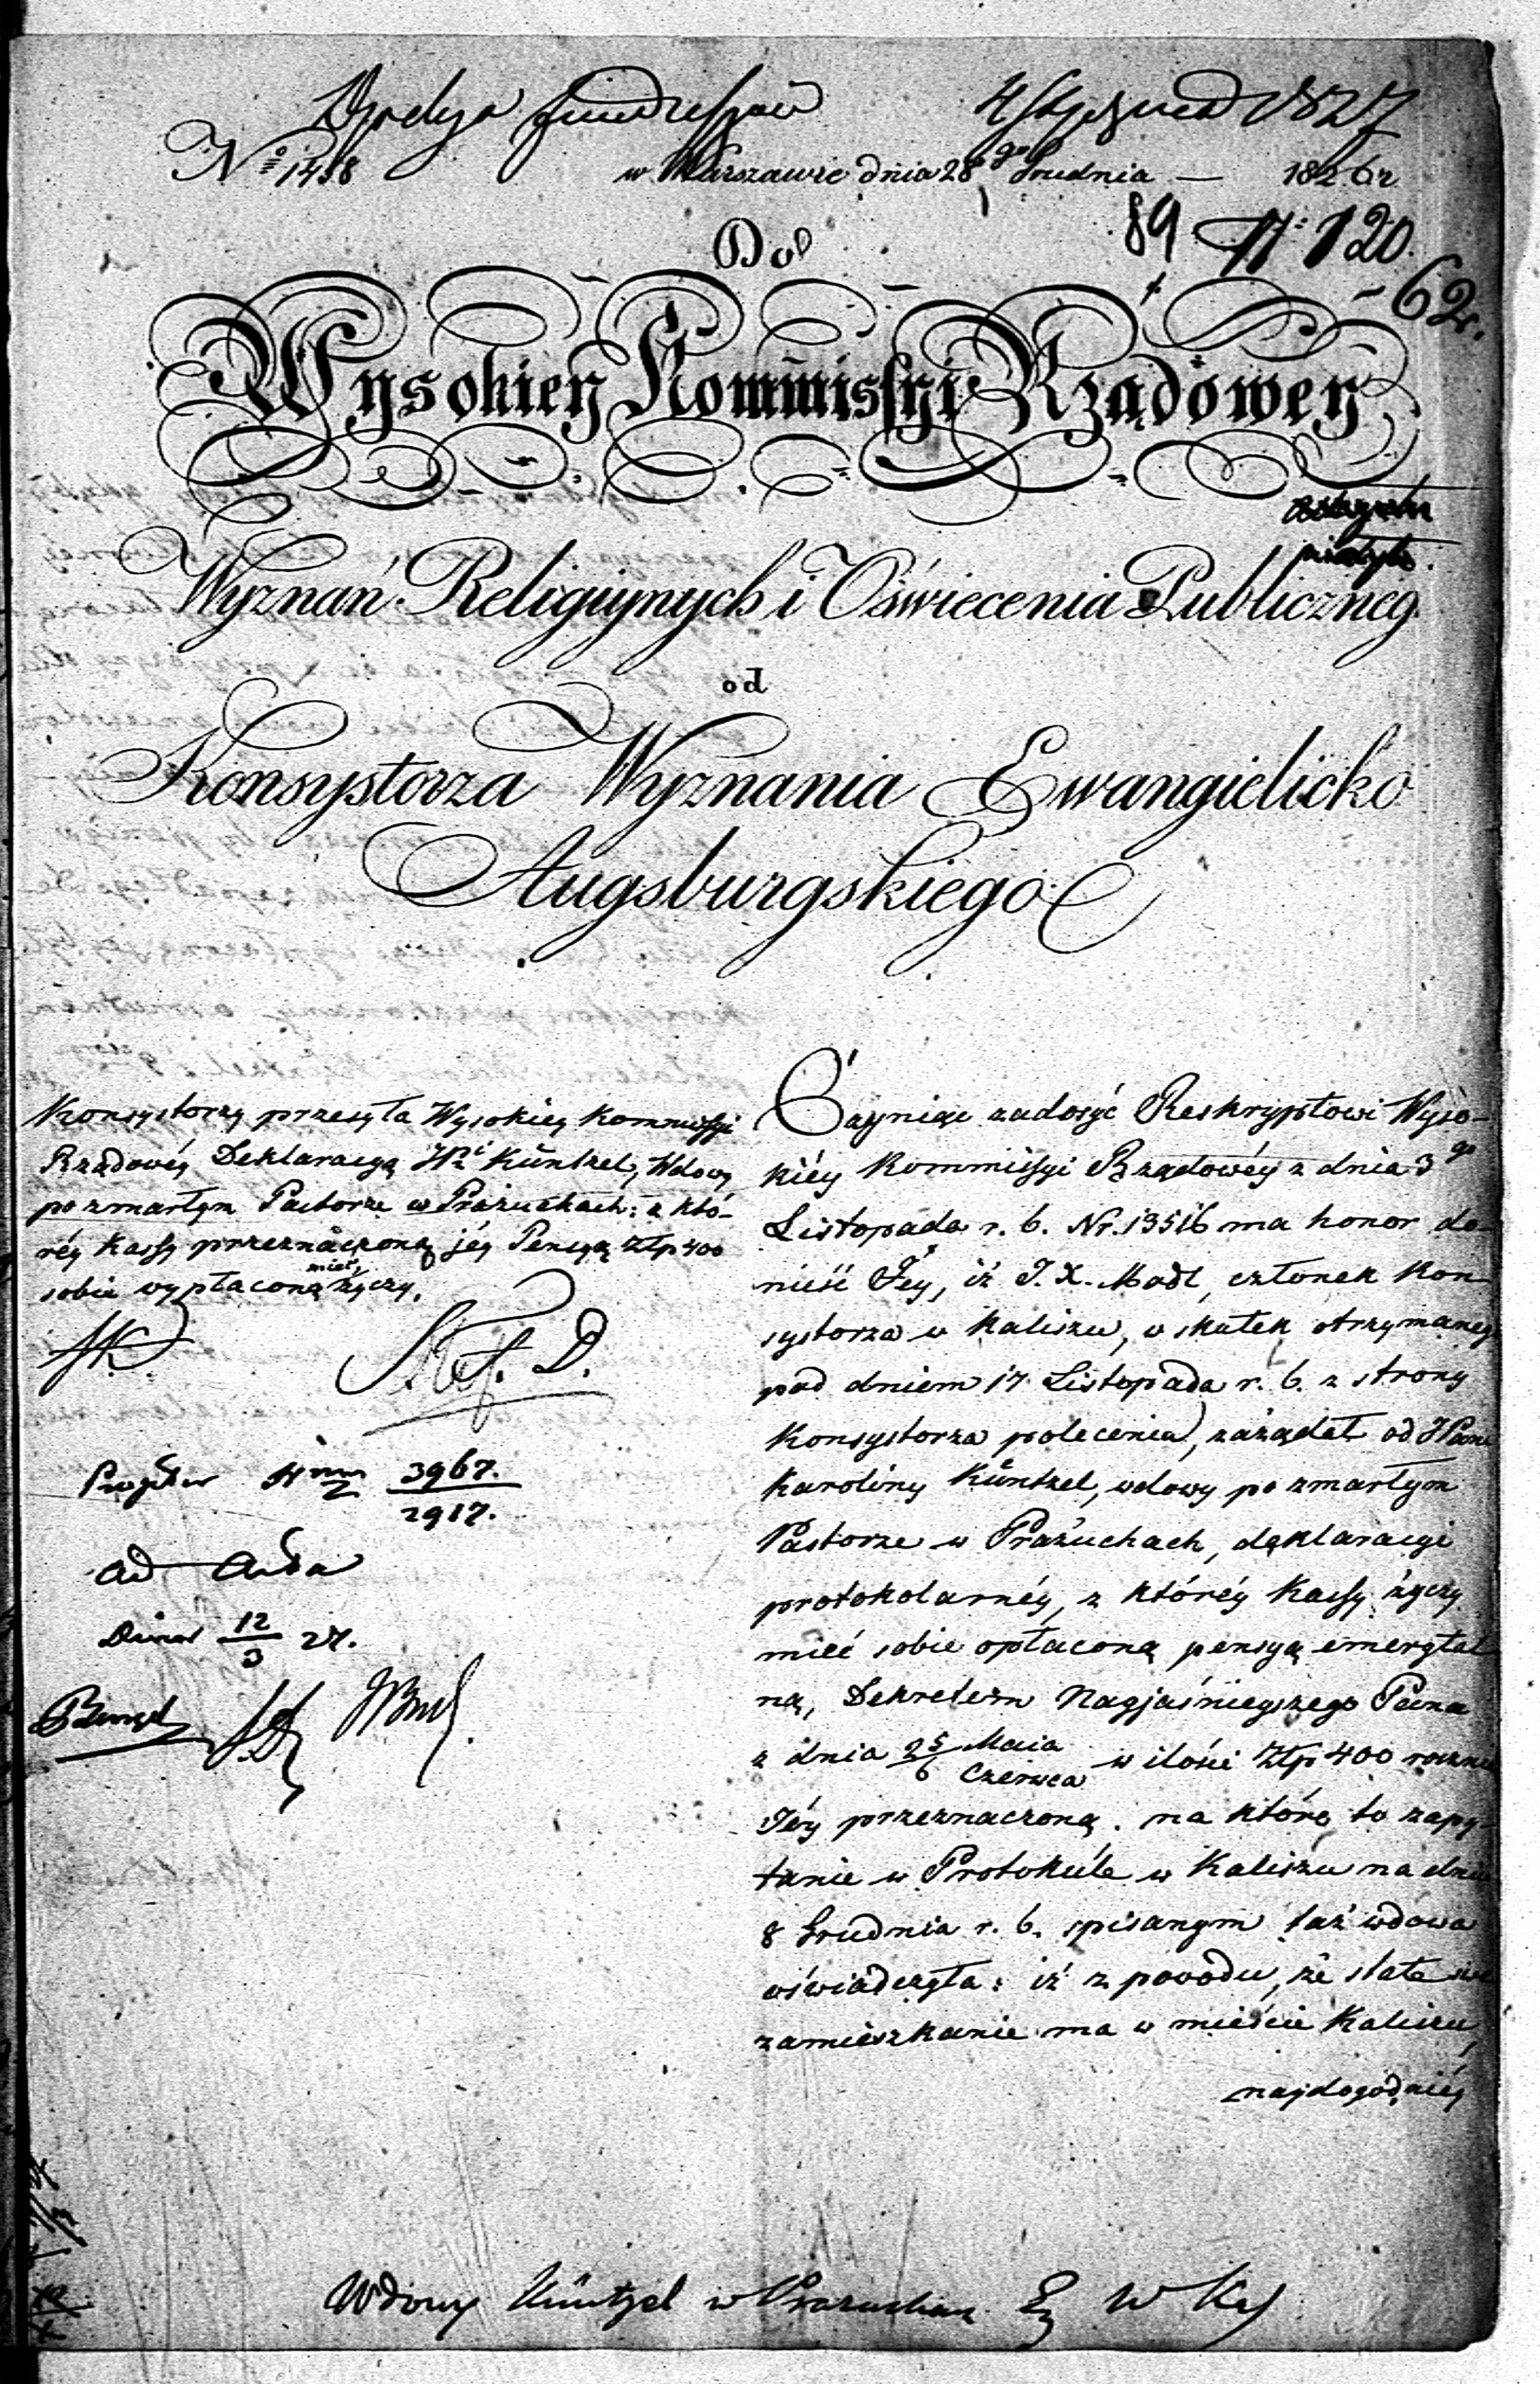 4 Stycznia 1827
No 1458 w Warszawie dnia 28go Grudnia — 1826 r
Do
89 N: 120.
62.
Wysokiey Kommissyi Rządowey
Wyznań Religiynych i Oświecenia Publiczneg.
od
Konsystorza Wyznania Ewangielicko
Augsburgskiego
Konsystorz przesyła Wysokiéy Kommissyi
Rządowéy Deklaracyą Küntzel, Wdowy
po zmarłym Pastorze w Prażuchach: z któ-
réy Kassy przeznaczoną jéy Pensyą Złp 400
sobie wypłaconą mieć życzy.
3967.
2917.
ad Acta
12/3 27.
Czyniąc zadosyć Reskryptowi Wyso-
kiéy Kommissyi Rządowéy z dnia 3go
Listopada r. b. Nr. 13516 ma honor do-
nieść Jéy, iż J. X. Modl, członek Kon-
systorza w Kaliszu, w skutek otrzymanego
pod dniem 17 Listopada r. b. z strony
Konsystorza polecenia, zażądał od JPani
Karoliny Küntzel, wdowy po zmarłym
Pastorze w Prażuchach, deklaracyi
protokolarnéy, z któréy Kassy życzy
mieć sobie opłaconą pensyą emerytal
ną, Dekretem Nayjaśnieyszego Pana
z dnia 25/6 Maia/Czerwca w ilości Złp 400 rocznie
Jéy przeznaczoną. na które to zapy-
tanie w Protokule w Kaliszu na dniu
8 Grudnia r. b. spisanym taż wdowa
oświadczyła: iż z powodu, że stałe swe
zamieszkanie ma w mieście Kaliszu,
naydogodniéy
Wdowy Küntzel w Prażuchach